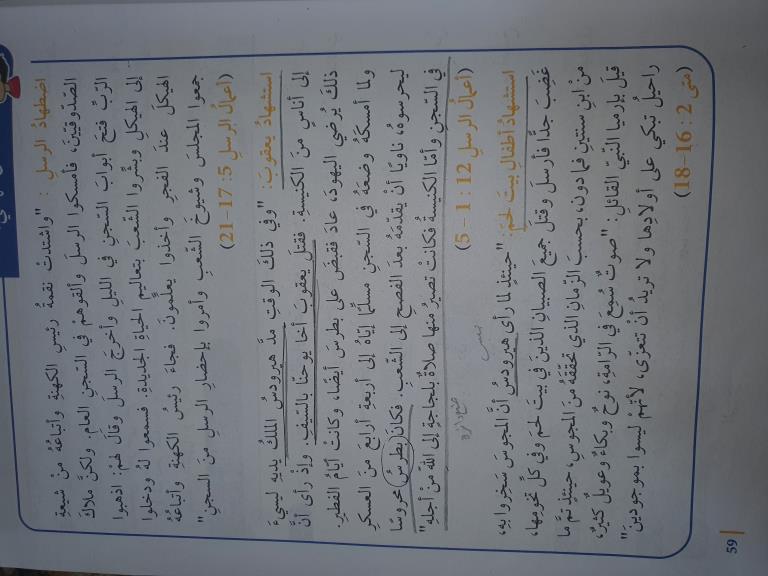 اضطهادُ الرسلِ : "واشتدتْ نقمةُ رئيسِ الكهنةِ وأتباعُهُ منْ شيعةِ
الصّدّوقيّينَ، فأمسكوا الرسلَ وألقوهُمْ في السّجنِ العامِ. ولكنَّ ملاكَ
الرّبِّ فتحَ أبوابَ السّجنِ في الليلِ وأخرجَ الرسلَ وقالَ لهُمْ: اذهبوا
إلى الهيكلِ وبشّروا الشّعبَ بتعاليمِ الحياةِ الجديدةِ. فسمعوا لهُ ودخلوا
الهيكلَ عندَ الفجرِ وأخذوا يعلّمونَ. فجاءَ رئيسُ الكهنةِ وأتباعُهُ
جمعوا المجلسَ وشيوخَ الشّعبِ وأمروا بإحضارِ الرسلِ منَ السجنِ"
(أعمالُ الرسلِ 5: 17-21)
استشهادُ يعقوبَ: "وفي ذلكَ الوقتِ مدَّ هيرودسُ الملكُ يديهِ ليسيءَ
إلى أناسٍ منَ الكنيسةِ. فقتلَ يعقوبَ أخا يوحنّا بالسّيفِ. وإذْ رأى أنَّ
ذلكَ يُرضي اليهودَ، عادَ فقبضَ على بطرسَ أيضًا. وكانتْ أيّامُ الفطيرِ
ولما أمسكهُ وضعَهُ في السّجنِ مسلّمًا إيّاهُ إلى أربعةِ أرابعَ منَ العسكرِ
ليحرسوهُ، ناويًا أنْ يقدّمَهُ بعدَ الفصحِ إلى الشّعبِ. فكانَ بطرسُ محروسًا
في السّجنِ وأمّا الكنيسةُ فكانتْ تصيرُ منها صلاةٌ بلجاجةٍ إلى اللهِ منْ أجلِه"
(أعمالُ الرسلِ 12: 1 – 5)
استشهادُ أطفالِ بيتَ لحمَ: "حينئذٍ لما رأى هيرودسُ أنَّ المجوسَ سَخِروا بهِ،
غَضِبَ جدًّا فأرسلَ وقتلَ جميعَ الصبيانِ الذينَ في بيتَ لحمَ وفي كلِّ تخومِها،
منْ ابنِ سنتينِ فما دون، بحسبَ الزّمانِ الذي تحقّقَهُ منَ المجوسِ، حينئذٍ تمَّ ما
قيلَ بإرميا النّبيِّ القائلِ: "صوتٌ سُمِعَ في الرّامةِ، نوحٌ وبكاءٌ وعويلٌ كثيرٌ،
راحيلُ تبكي على أولادِها ولا تريدُ أنْ تتعزّى، لأنّهمْ ليسوا بموجودينَ"
(متى 2: 16-18)
59